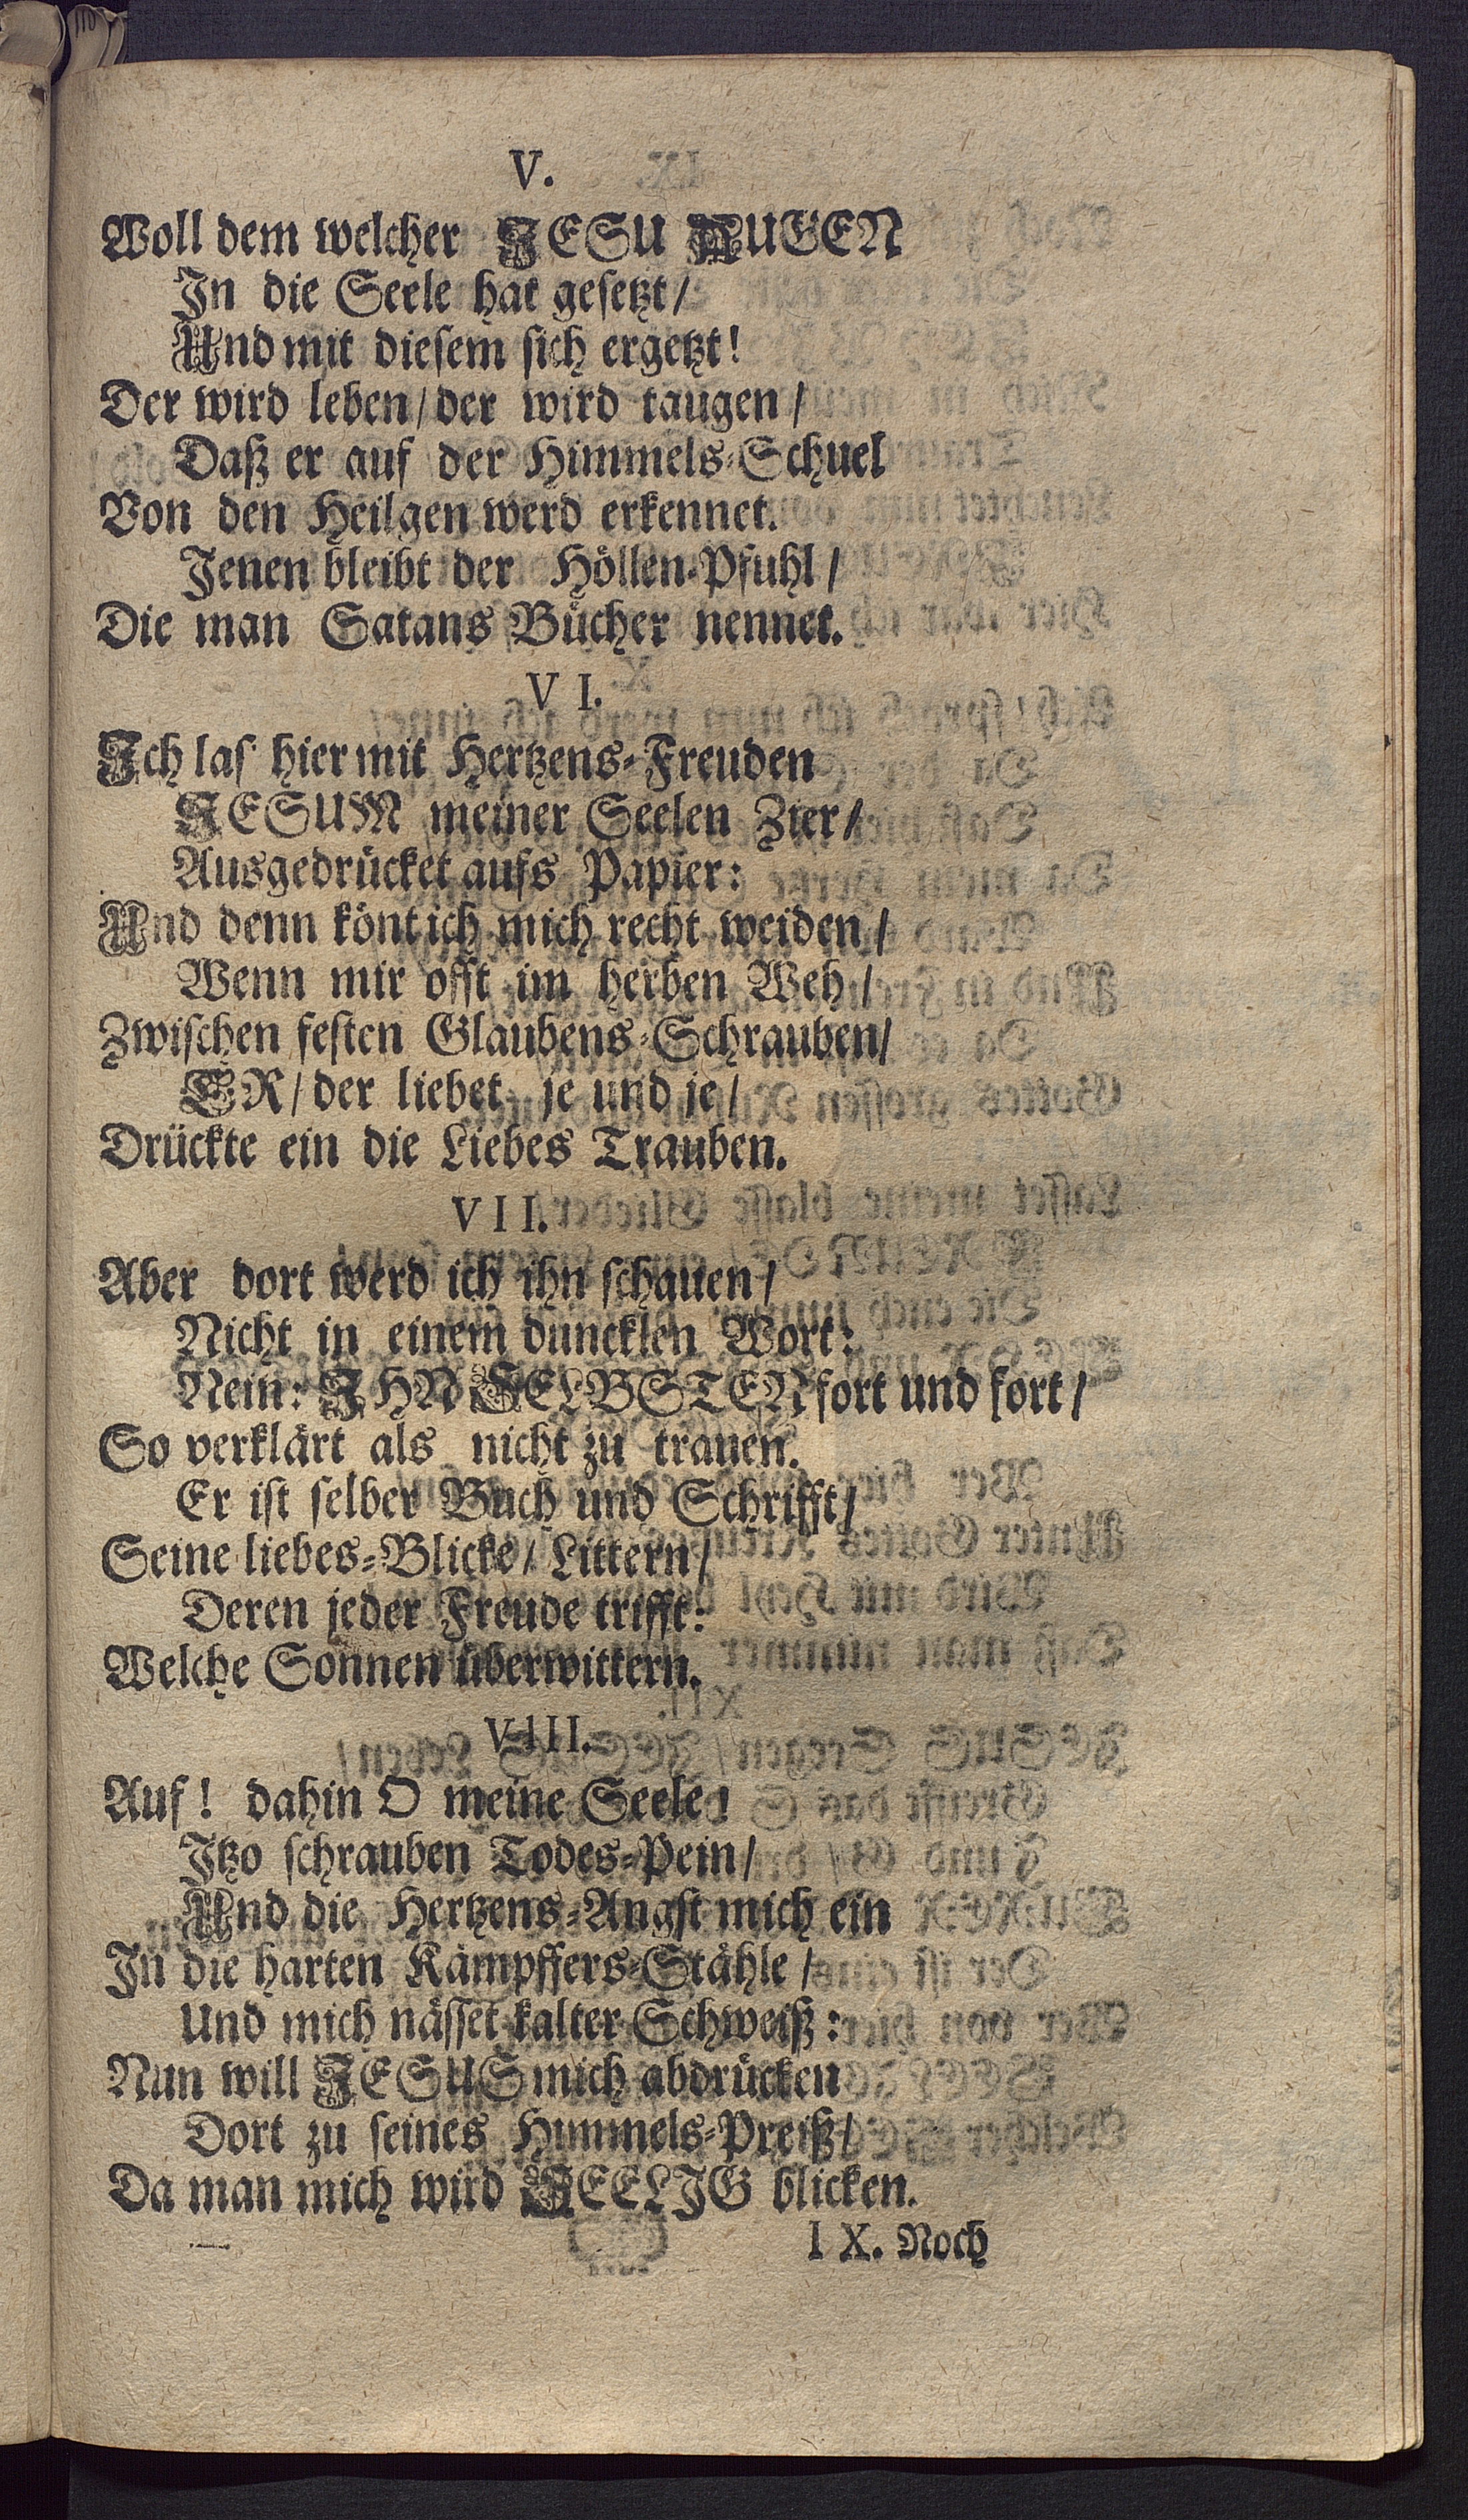 V.
Woll dem welcher JESU AUGEN
In die Seele hat gesetzt/
Und mit diesem sich ergetzt!
Der wird leben/ der wird taugen/
Daß er auf der Himmels-Schuel
Von den Heilgen werd erkennet.
Jenen bleibt der Höllen-Pfuhl/
Die man Satans Bücher nennet.
VI.
Ich las hier mit Hertzens-Freuden
JESUM meiner Seelen Zier/
Ausgedrücket aufs Papier:
Und denn könt ich mich recht weiden/
Wenn mir offt im herben Weh/
Zwischen festen Glaubens-Schrauben/
ER/ der liebet je und je/
Drückte ein die Liebes Trauben.
VII.
Aber dort werd ich ihn schauen/
Nicht in einem duncklen Wort:
Nein: IHN SELBSTEN fort und fort/
So verklärt als nicht zu trauen.
Er ist selber Buch und Schrifft/
Seine liebes-Blicke/ Littern/
Deren jeder Freude trifft:
Welche Sonnen überwittern.
VIII.
Auf! dahin O meine Seele!
Itzo schrauben Todes-Pein/
Und die Hertzens-Angst mich ein
In die harten Kämpffers-Stähle/
Und mich nässet kalter Schweiß:
Nun will JESUS mich abdrücken
Dort zu seines Himmels-Preiß/
Da man mich wird SEELIG blicken.
IX. Noch